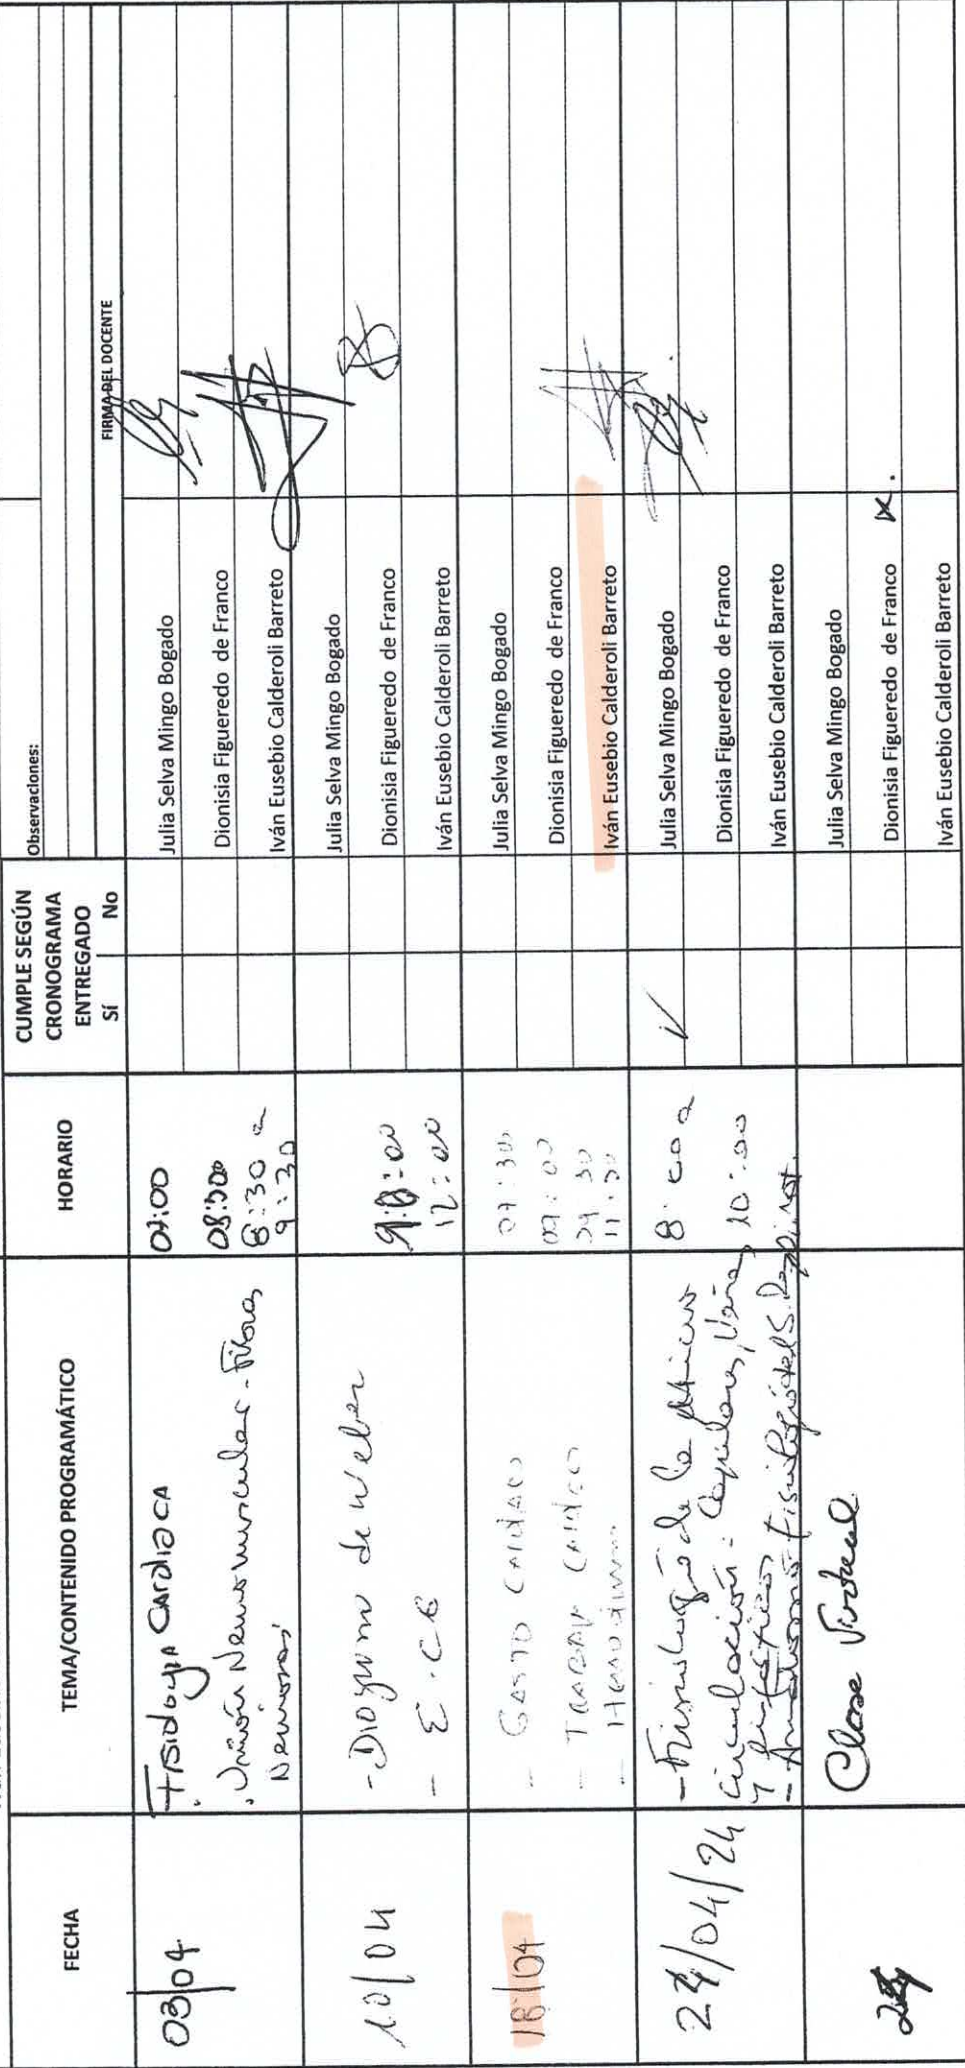 Observaciones:
FECHA
TEMA/CONTENIDO PROGRAMÁTICO
HORARIO
CUMPLE SEGÚN
CRONOGRAMA
ENTREGADO
Sí No
FIRMA DEL DOCENTE
03/04
Fisiología CARDIACA
07:00
Julia Selva Mingo Bogado
Unión Neuromuscular - Fibras
Nerviosas
08:30
8:30 a
9:30
Dionisia Figueredo de Franco
Iván Eusebio Calderoli Barreto
10/04
- Diagrama de Weber
- E.C.G
12:00
Julia Selva Mingo Bogado
Dionisia Figueredo de Franco
Iván Eusebio Calderoli Barreto
18/04
- GASTO CARDIACO
- TRABAJO CARDIACO
- Hemodinamia
07:30
09:00
09:30
11:30
Julia Selva Mingo Bogado
Dionisia Figueredo de Franco
Iván Eusebio Calderoli Barreto
24/04/24
- Fisiología de la
circulación: Capilares, Venas,
y linfáticos
- Anatomo-fisiología del S. Respirat.
8:00 a
10:00
Julia Selva Mingo Bogado
Dionisia Figueredo de Franco
Iván Eusebio Calderoli Barreto
Clase Virtual
Julia Selva Mingo Bogado
Dionisia Figueredo de Franco
Iván Eusebio Calderoli Barreto